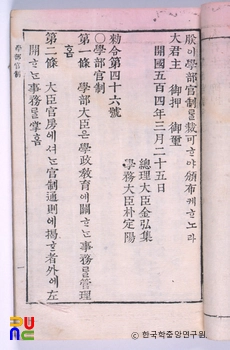 朕이學部官制를裁可ᄒᆞ야頒布케ᄒᆞ노라
大君主 御押 御璽
開國五百四年三月二十五日
總理大臣金弘集
學務大臣朴定陽
勅令第四十六號
○學部官制
第一條 學部大臣은學政敎育에關ᄒᆞᄂᆞᆫ事務를管理
홈
第二條 大臣官房에셔ᄂᆞᆫ官制通則에揭ᄒᆞᆫ者外에左
開ᄒᆞᄂᆞᆫ事務를掌홈
學部官制
ⓒ 한국학중앙연구원